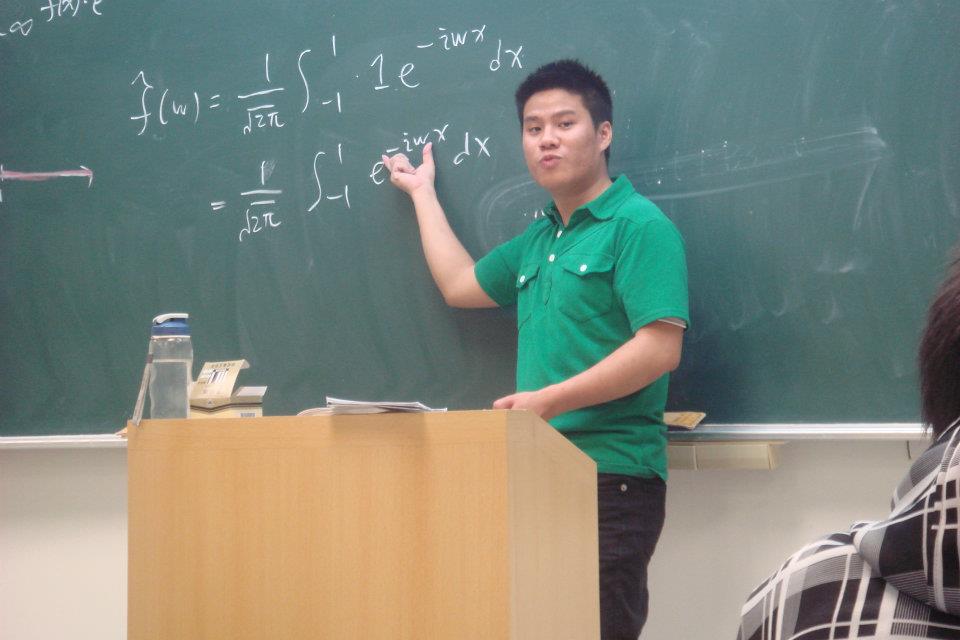 ∞ f(x)·e
f̂(w) = 1/√2π ∫₋₁¹ ·1e^(-iwx) dx
= 1/√2π ∫₋₁¹ e^(-iwx) dx